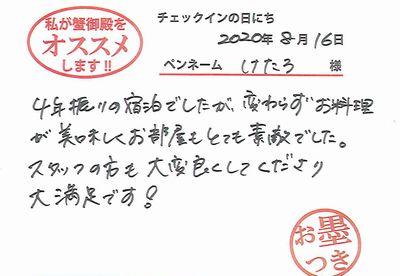 私が蟹御殿を
オススメ
します!!
チェックインの日にち
2020年 8月 16日
ペンネーム けたろ 様
4年振りの宿泊でしたが、変わらずお料理
が美味しくお部屋もとても素敵でした。
スタッフの方も大変良くしてくださり
大満足です!
お墨
つき